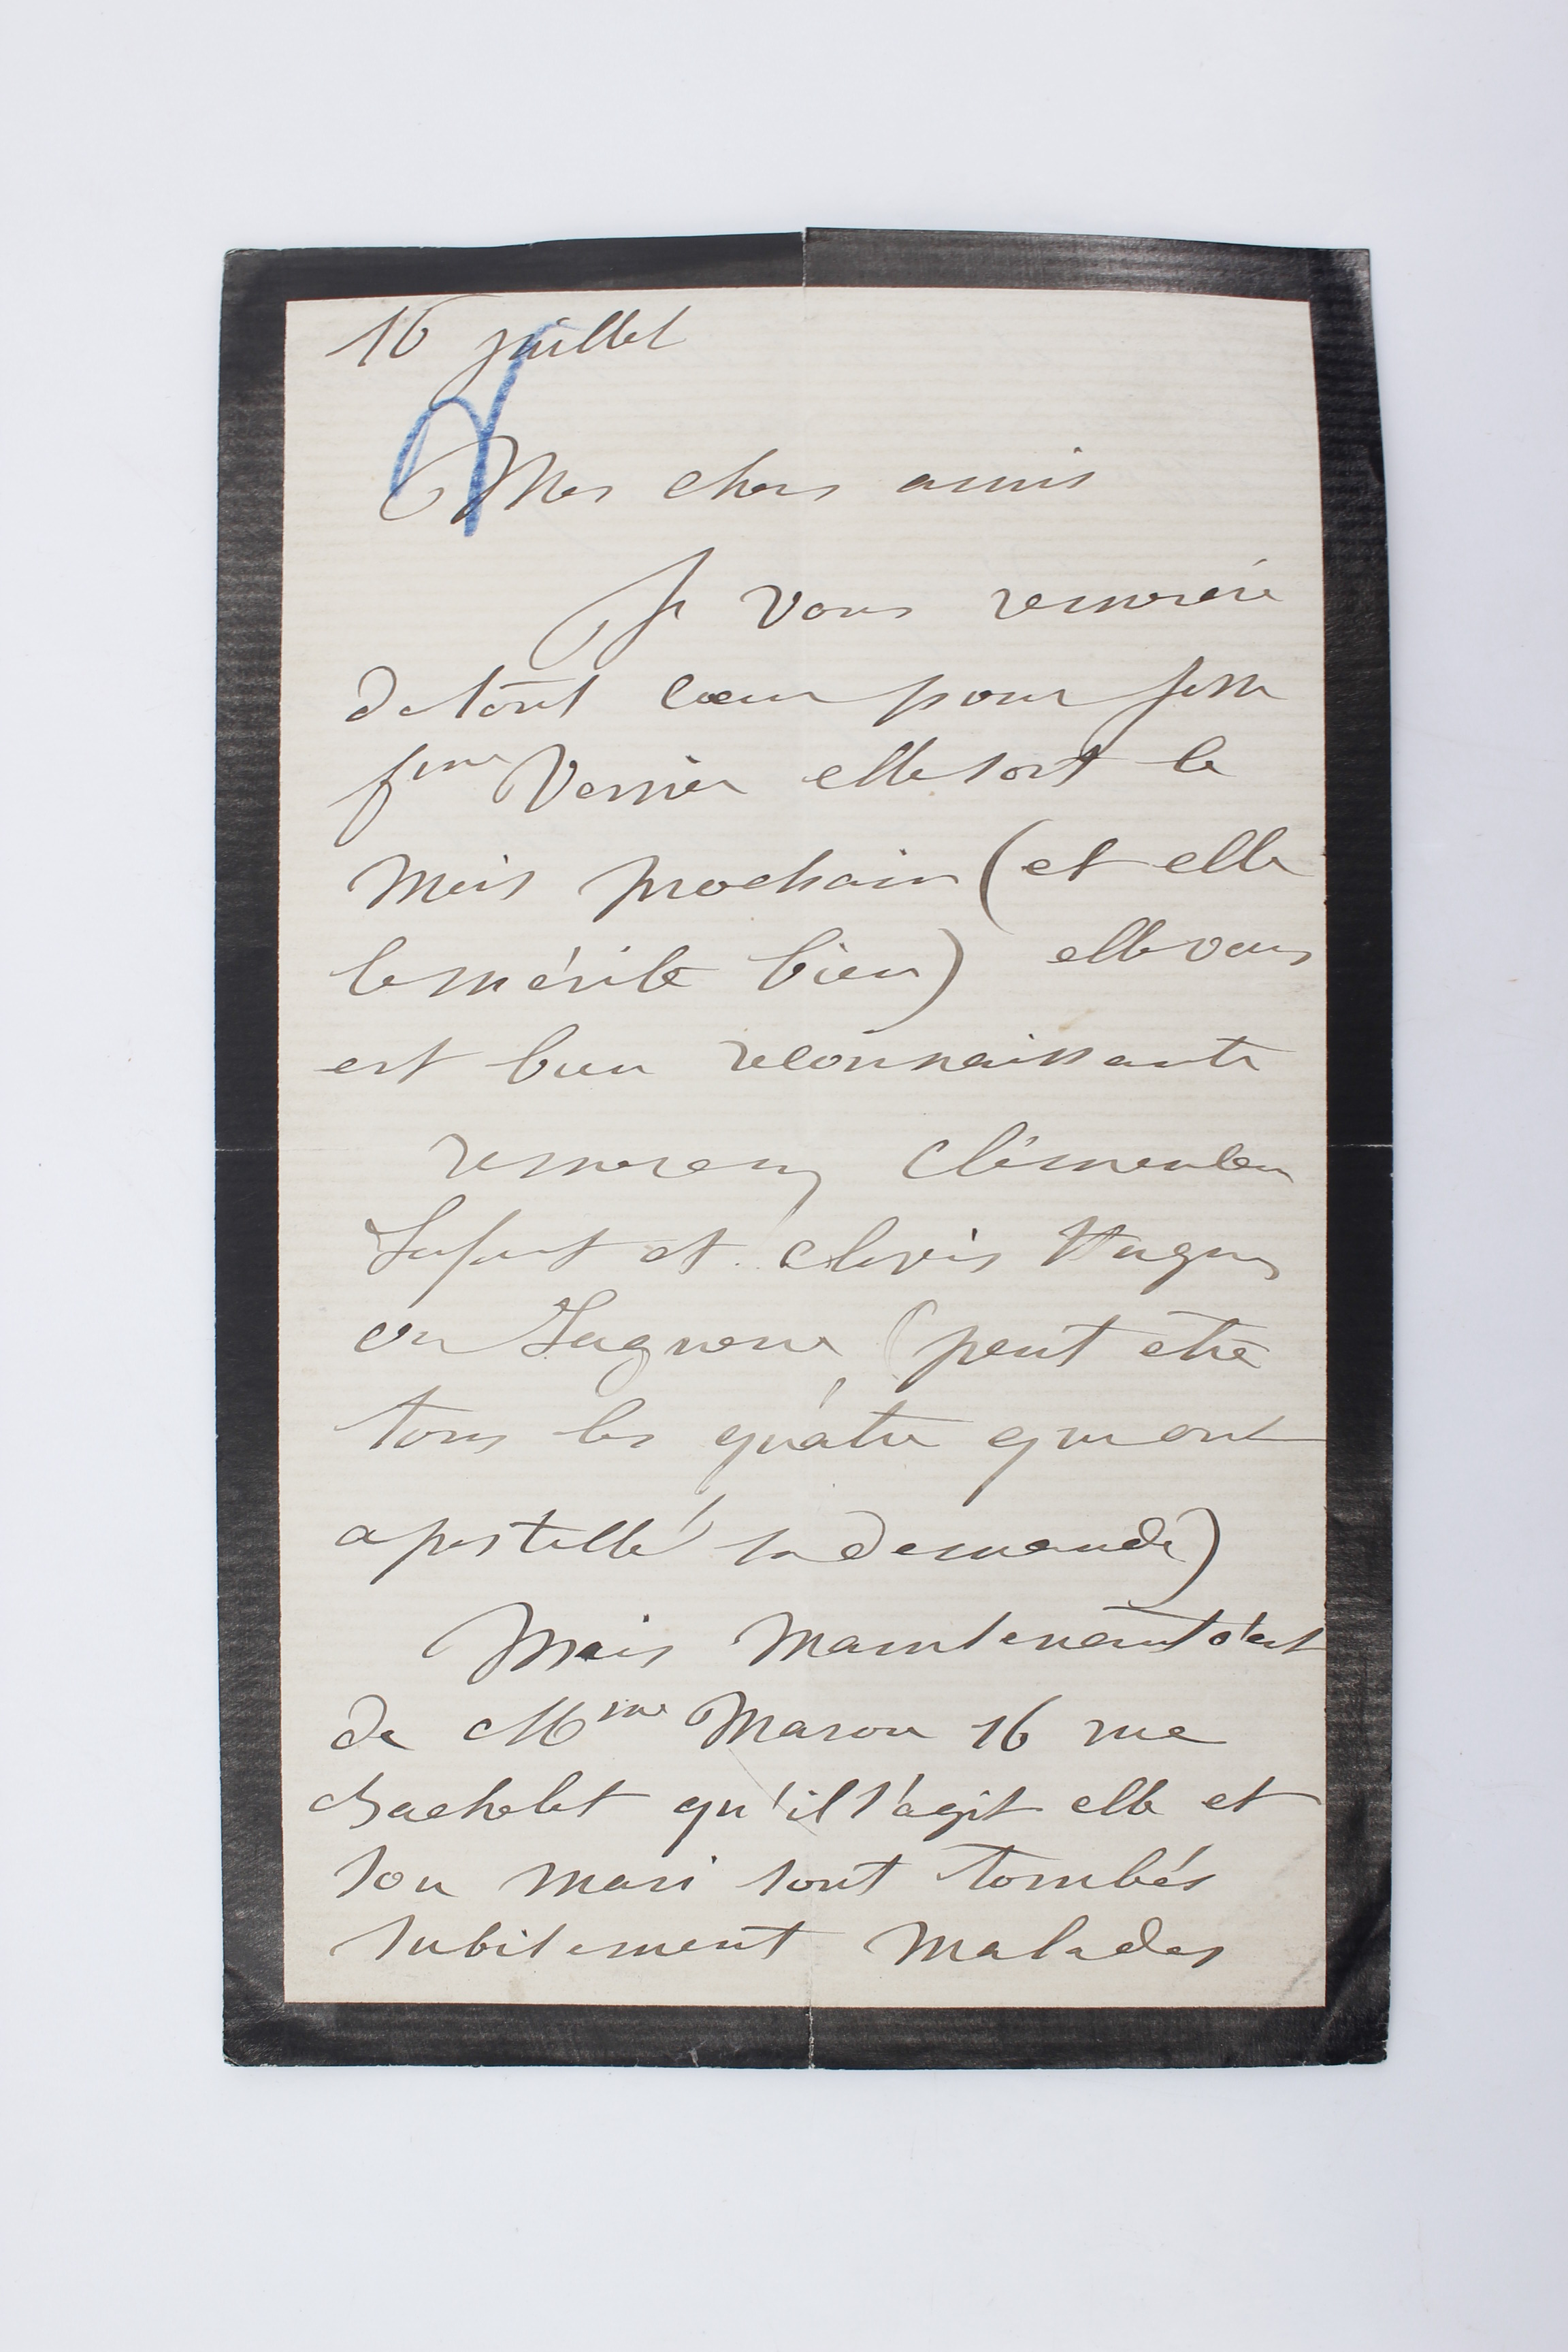 16 juillet
Mes chers amis
Je vous remercie
de tout cœur pour
fme Verrier elle sort le
mois prochain (et elle
le mérite bien) elle vous
est bien reconnaissante
remerciez Clémenceau
et Clovis Hugues
ou (peut être
tous les quatre qui ont
apostillé sa demande)
Mais maintenant c'est
de Mme Mason 16 rue
Bachelet qu'il s'agit elle et
son mari sont tombés
subitement malades